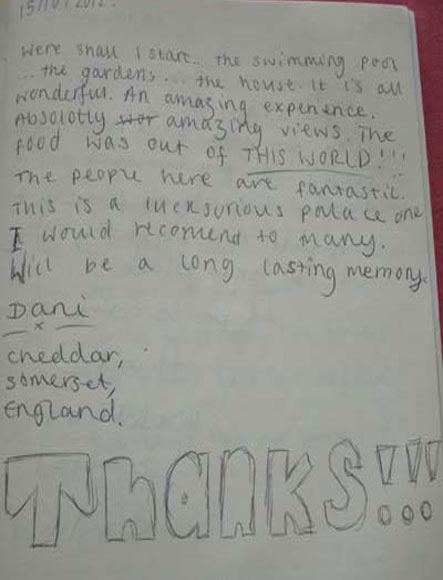 15/10/2012.
Were shall I start... the swimming pool
... the gardens... the house. It is all
wonderful. An amazing experience.
Absolotly amazing views. The
food was out of THIS WORLD!!!
The people here are fantastic.
This is a lucksurious palace one
I would recomend to many.
Will be a long lasting memory.
Dani
x
cheddar,
somerset,
England.
Thanks!!!